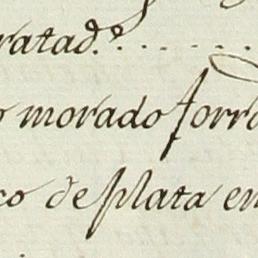 ratad.e......
o morado forra
co de plata en